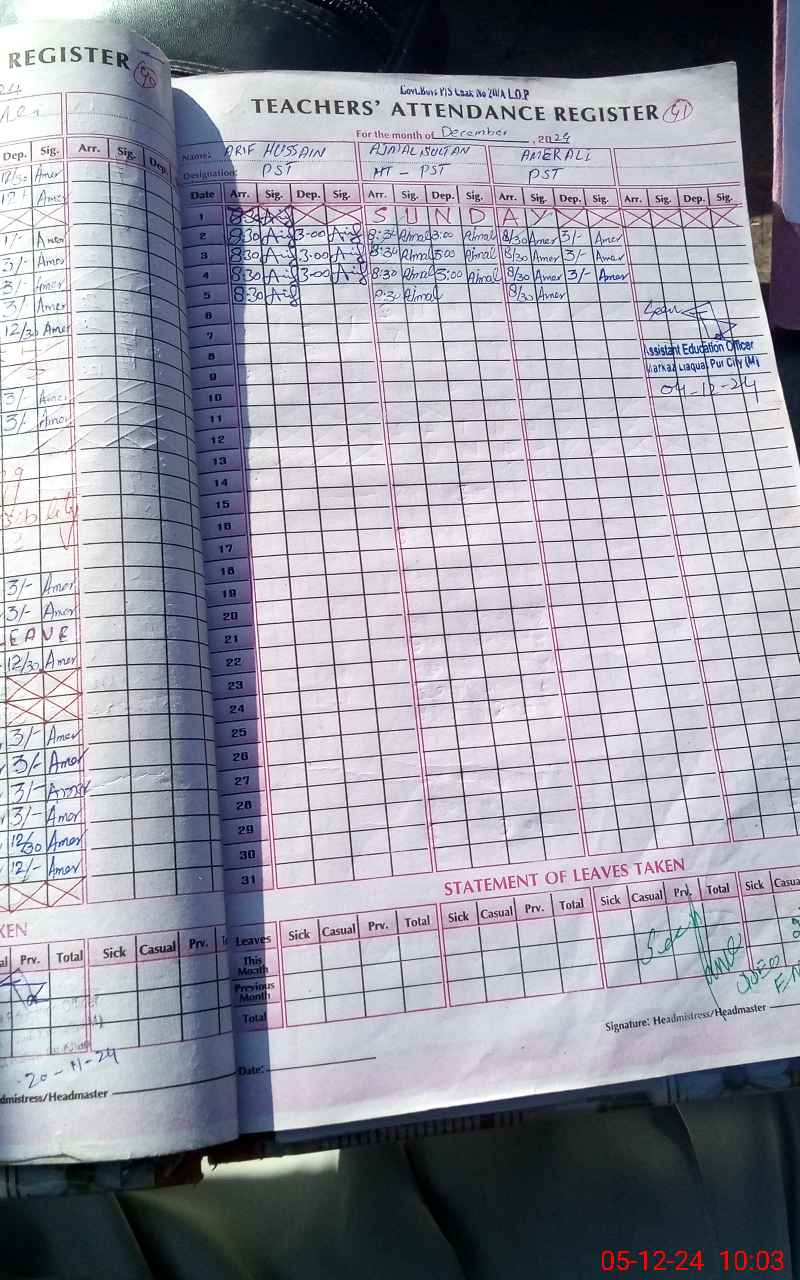 REGISTER 90
Dep. Sig. Arr. Sig. Dep.
12/30 Amer
Amer
1/- Amer
3/- Amer
3/- Amer
3/- Amer
12/30 Amer
3/- Amer
3/- Amer
3/- Amer
3/- Amer
LEAVE
12/30 Amer
3/- Amer
3/- Amer
3/- Amer
3/- Amer
12/30 Amer
12/- Amer
KEN
Prv. Total Sick Casual Prv.
20-11-24
dmistress/Headmaster
TEACHERS' ATTENDANCE REGISTER 91
For the month of December, 2024
Name: ARIF HUSSAIN AJMAL SULTAN AMER ALI
Designation: PST HT - PST PST
Date Arr. Sig. Dep. Sig. Arr. Sig. Dep. Sig. Arr. Sig. Dep. Sig. Arr. Sig. Dep. Sig.
1 SUNDAY
2 8:30 Arif 3-00 Arif 8:30 Ajmal 3:00 Ajmal 8/30 Amer 3/- Amer
3 8:30 Arif 3-00 Arif 8:30 Ajmal 3:00 Ajmal 8/30 Amer 3/- Amer
4 8:30 Arif 3-00 Arif 8:30 Ajmal 3:00 Ajmal 8/30 Amer 3/- Amer
5 8:30 Arif 8:30 Ajmal 8/30 Amer
6
7
Seen
8
Assistant Education Officer
9
Markaz Liaquat Pur City (M)
10
04-12-24
11
12
13
14
15
16
17
18
19
20
21
22
23
24
25
26
27
28
29
30
31
STATEMENT OF LEAVES TAKEN
Leaves Sick Casual Prv. Total Sick Casual Prv. Total Sick Casual Prv. Total Sick Casual
This Month
Previous Month
Total
Signature: Headmistress/Headmaster
Date:
05-12-24 10:03